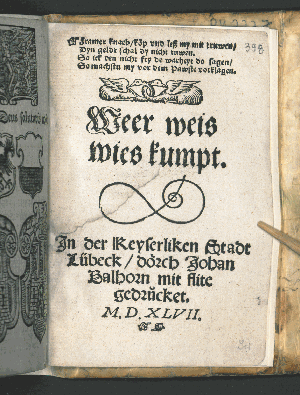 Framer knecht/köp vnd leß my mit truwen/
Dyn geldt schal dy nicht ruwen.
So ick den nicht sey de warheyt do sagen/
So machstu my vor dem Pawste vorklagen.
Weer weis
wies kumpt.
In der Keyserliken Stadt
Lübeck/ dörch Johan
Balhorn mit flite
gedrücket.
M.D.XLVII.
398